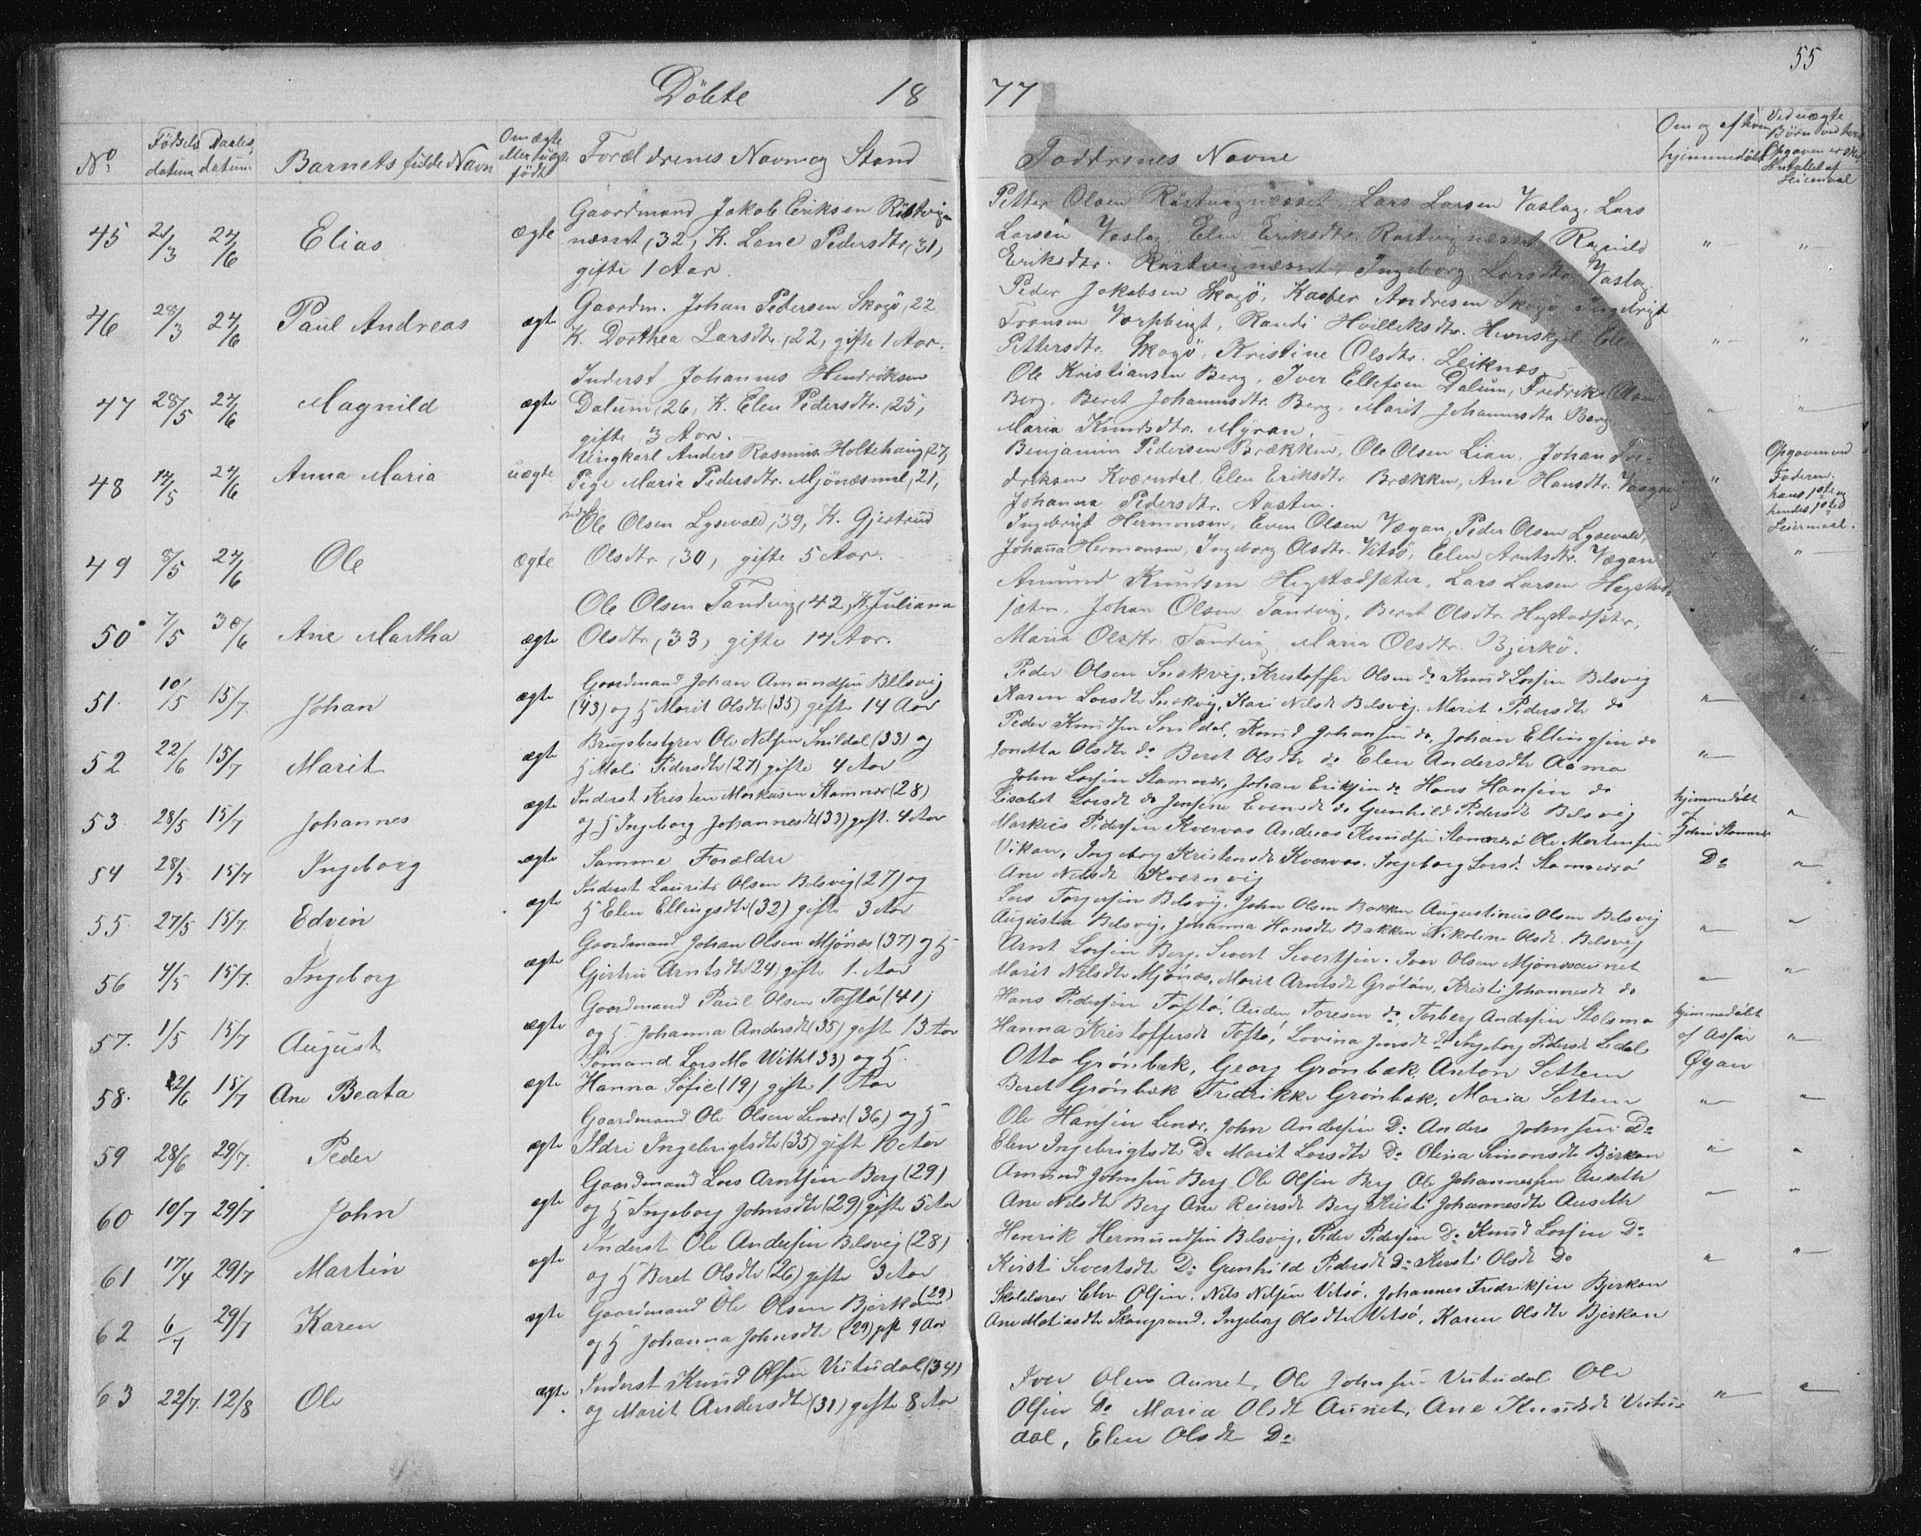 55
Döbte 18 77
No
Fødsels datum
Daabs datum
Barnets fulde Navn
Om ægte eller uægte født
Forældrenes Navn og Stand
Faddrenes Navne
Om og af hvem hjemmedøbt
Ved uægte Børn
45 21/3 24/6 Elias ægte
Gaardmand Jakob Eriksen Röstvig
næsset, 32, K. Lene Pedersdtr, 31,
gifte 1 Aar.
Petter Olsen Röstvignæsset, Lars Larsen Vaslag, Lars
Larsen Vaslag, Elen Eriksdtr. Röstvignæsset Ragnild
Eriksdtr. Röstvignæsset, Ingeborg Larsdtr. Vaslag.
46 28/3 24/6 Paul Andreas ægt
Gaardm. Johan Pedersen Skogö, 22
K. Dorthea Larsdtr, 22, gifte 1 Aar.
Peder Jakobsen Skogö, Kasper Andresen Skogö Ingebrigt
Fransen Vorpbugt, Randi Hvilleksdtr. Hevnskjel Elen
Pettersdtr. Skogö, Kristine Olsdtr. Leiknes.
47 28/5 24/6 Magnild ægte
Inderst Johannes Hendriksen
Dalum, 26, K. Elen Pedersdtr. 25,
gifte 3 Aar.
Ole Kristiansen Berg, Iver Ellefsen Dalum, Fredrik Olsen
Berg, Beret Johannesdtr. Berg, Marit Johannesdtr Berg
Maria Knudsdtr. Myran.
48 14/5 24/6 Anna Maria uægte
Ungkarl Anders Rasmus. Holtehaug, 27,
Pige Maria Pedersdtr. Mjönæsmel, 21,
Benjamin Pedersen Brækken, Ole Olsen Lian, Johan Fre-
deriksen Kværndal, Elen Eriksdtr. Brækken, Ane Hansdtr.
Johanna Pedersdtr. Aasten.
Opgaven ved
Faderen.
hans 1ste og
hendes 1ste
Leiermaal.
49 8/5 24/6 Ole ægte
Ole Olsen Lysevald, 39, K. Gjertrud
Olsdtr, 30, gifte 5 Aar.
Ingebrigt Hermonsen, Even Olsen Vægan, Peder Olsen Lysevald,
Johanna Hermonsen, Ingeborg Olsdtr. Vitsö, Elen Arntsdtr. Vægan
50 7/5 30/6 Ane Martha ægte
Ole Olsen Tandvig, 42, K. Juliana
Olsdtr, 33, gifte 14 Aar.
Amund Knudsen Hegstadsæter, Lars Larsen Hegstad-
sæter, Johan Olsen Tandvig, Beret Olsdtr. Hegstadsæter,
Maria Olsdtr Tandvig, Maria Olsdtr. Bjerkö.
51. 10/5 15/7. Johan ægte
Gaardmand Johan Amundsen Belsvig
(43) og H Marit Olsdtr (35) gifte 14 Aar
Peder Olsen Snekvig, Kristoffer Olsen do Knud Larsen Belsvig
Karen Larsdtr Snekvig, Kari Nilsdtr Belsvig, Marit Pedersdtr do
52 22/6 15/7 Marit ægte
Brugsbestyrer Ole Nelsen Snildal (33) og
H Mali Pedersdtr (27) gifte 4 Aar
Peder Knudsen Snildal, Knud Johansen do, Johan Ellingsen do
Jonetta Olsdtr do Beret Olsdtr do Elen Andersdtr Aamo
53. 28/5 15/7 Johannes ægte
Inderst Kristen Markusen Stamnæs (28)
og H Ingeborg Johannesdt (33) gift. 4 Aar
John Larsen Stamnæs, Johan Eriksen do Hans Hansen do
Lisabet Larsdt do Jensine Evensdt do Gunhild Pedersdt Belsvig
hjemmedøbt
54 28/5 15/7 Ingeborg ægte
Samme Forældre
Markus Pedersen Kværvos Andreas Knudsen Stamnesö Ole Mortensen
Vikan, Ingeborg Kristensdt Kværvos, Ingeborg Larsdt Stamnesö
Ane Nelsdt Kværnvig
Do
55. 27/5 15/7. Edvin ægte
Inderst Laurits Olsen Belsvig (27) og
H Elen Ellingsdtr (32) gifte 3 Aar
Lars Torgersen Belsvig, John Olsen Bakken Augustinus Olsen Belsvig
Augusta Belsvig, Johanna Hansdtr Bakken Nikoline Olsdt Belsvig
56 4/5 15/7. Ingeborg ægte
Gaardmand Johan Olsen Mjönæs (37) og H
Gjertru Arntsdtr (24) gifte 1. Aar
Arnt Larsen Berg, Sivert Sivertsen, Iver Olsen Mjönæsaunet
Marit Nilsdtr Mjönæs, Marit Arntsdt Grötan, Kristi Johannesdt do
57. 1/5 15/7 August ægte
Gaardmand Paul Olsen Töftö (41)
og H Johanna Andersdt (35) gifte 13 Aar
Hans Pedersen Töftö, Auden Toresen do, Torberg Andersen Stolsmo
Hanna Kristoffersdt Töftö, Lovina Jensdt do Ingeborg Pedersdt Lidal
hjemmedøbt
af Asfar
Øyan
58. 12/6 15/7 Ane Beata ægte
Sømand Lars Mo With (33) og H.
Hanna Sofie (19) gifte 1 Aar
Otto Grönbæk, Georg Grönbæk, Anton Settem
Beret Grönbæk Fredrikke Grönbæk, Maria Settem
59 28/6 29/7. Peder ægte
Gaardmand Ole Olsen Lenæs (36) og H
Ildri Ingebrigtsdtr (35) gifte 10 Aar
Ole Hansen Lenæs, John Andersen Do Anders Johnsen Do
Elen Ingebrigtsdt Do Marit Larsdtr Do Olina Simonsdt Bjerkan
60 10/7 29/7 John ægte
Gaardmand Lars Arntsen Berg (29)
og H Ingeborg Johnsdtr (29) gifte 5 Aar
Amund Johnsen Berg Ole Olsen Berg Ole Johannesen Auseth
Ane Nilsdtr Berg Ane Reiersdt Berg Kristi Johannesdtr Auseth
61 17/4 29/7 Martin ægte
Inderst Ole Andersen Belsvig (28)
og H Beret Olsdtr (26) gifte 3 Aar
Henrik Hermundsen Belsvig, Peder Pedersen Do Knud Larsen Do
Kirsti Sivertsdt Do Gunhild Pedersdt Do Kirsti Olsdt Do
62 6/7 29/7 Karen ægte
Gaardmand Ole Olsen Bjerkan (29)
og H Johanna Johnsdtr (29) gift 9 Aar
Skolelærer Chr. Olsen, Nils Nelsen Vitsö, Johannes Fredriksen Bjerkan
Ane Matiasdtr Skaugrand, Ingeborg Olsdtr Vitsö, Karen Olsdtr Bjerkan
63 22/7. 12/8 Ole ægte.
Inderst Knud Olsen Vutudal (34)
og Marit Andersdtr (31) gifte 8 Aar
Iver Olsen Aunet, Ole Johnsen Vutudal Ole
Olsen Do Maria Olsdt Aunet, Ane Knudsdt Vutu-
dal, Elen Olsdt Do